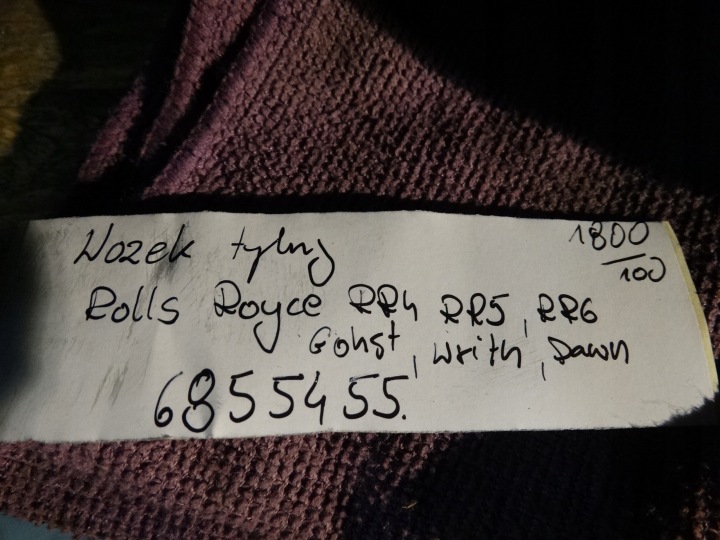 Wozek tylny
1800
/100
Rolls Royce RR4 RR5, RR6
Gohst, Writh, Dawn
6855455.